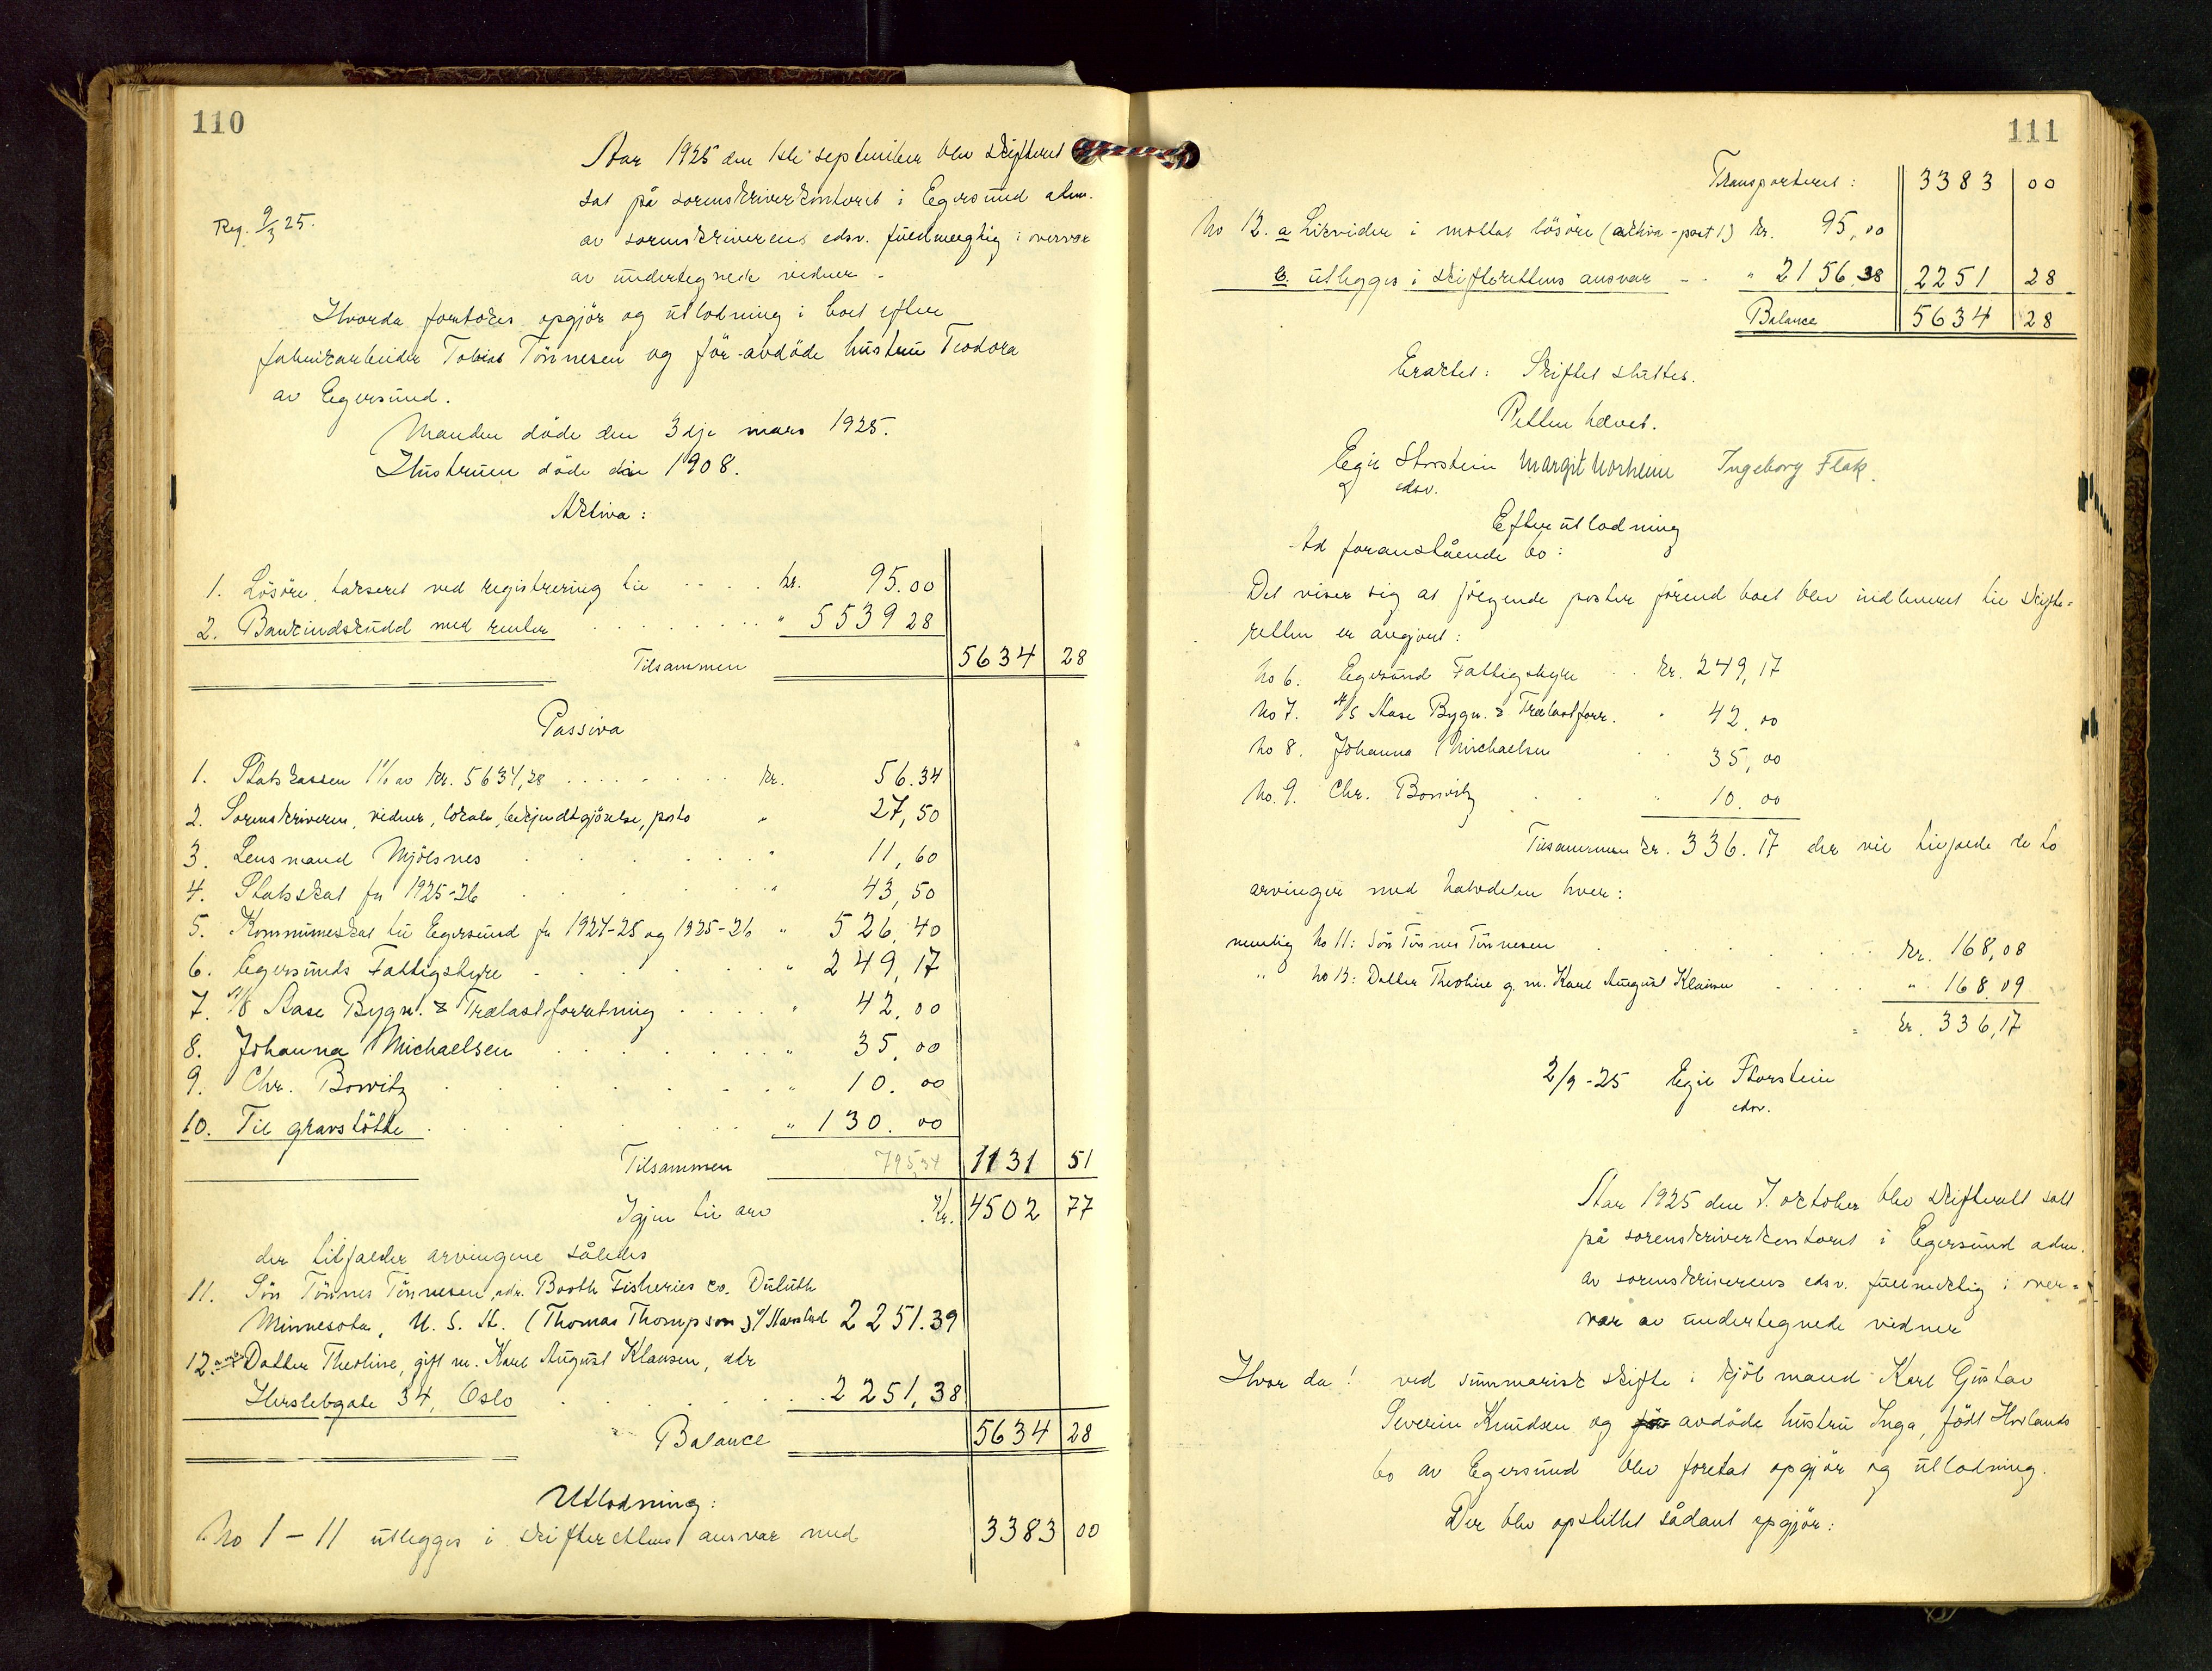 110
Aar 1925 den 1ste september blev skifteret
sat på sorenskriverkontoret i Egersund adm.
av sorenskriverens edsv. fuldmægtig i overvær
av undertegnede vidner -
Reg. 9/3 25.
Hvorda foretokes opgjör og utlodning i boet efter
fabrikarbeider Tobias Tönnesen og för avdöde hustru Teodora
av Egersund.
Manden döde den 3dje mars 1925.
Hustruen döde i 1908.
Aktiva:
1. Lösöre, takseret ved registrering til .... kr. 95.00
2. Bankindskudd med renter ........ " 5539 28
Tilsammen 5634 28
Passiva
1. Statskassen 1% av kr. 5634,28 ....... kr. 56.34
2. Sorenskriveren, vidner, lokale, bekjendtgjörelse, porto " 27,50
3. Lensmand Mjölsnes ...... " 11,60
4. Statsskat for 1925-26 ...... " 43,50
5. Kommuneskat til Egersund for 1924-25 og 1925-26 " 526,40
6. Egersunds Fattigstyre ...... " 249,17
7. A/S Aase Bygn. & Trælastforretning .... " 42.00
8. Johanna Michaelsen ....... " 35.00
9. Chr. Bowitz ....... " 10.00
10. Til gravstötte ........ " 130.00
Tilsammen 795,34 1131 51
Igjen til arv kr. 4502 77
der tilfalder arvingene således
11. Sön Tönnes Tönnesen, adr. Booth Fisheries Co. Duluth
Minnesota, U. S. A. (Thomas Thompson) 2251.39
12. Datter Theoline, gift m. Karl August Klausen, adr
Herslebgate 34, Oslo ...... 2251,38
Balance 5634 28
Utlodning:
No 1 - 11 utlegges i skifterettens ansvar med 3383 00
111
Transporteret: 3383 00
No 12. a Likvider i mottat lösöre (aktiva-post 1) kr. 95,00
b. utlegges i skifterettens ansvar - " 2156,38 2251 28
Balance 5634 28
Eraktet: Skiftet sluttes.
Retten hævet.
Egil Storstein Margit Norheim Ingeborg Flak.
edsv.
Efterutlodning
Ad foranstående bo:
Det viser sig at fölgende poster förend boet blev indleveret til skifte-
retten er avgjort:
No 6. Egersund Fattigstyre .. kr. 249,17
No 7. A/S Aase Bygn. & Trælastforr. " 42,00
No 8. Johanna Michaelsen .. 35,00
No. 9. Chr. Bowitz .. " 10.00
Tilsammen kr. 336.17 der vil tilfalde de to
arvinger med halvdelen hver:
nemlig No 11: Sön Tönnes Tönnesen ...... kr. 168,08
" No 12: Datter Theoline g. m. Karl August Klausen .... " 168,09
= kr. 336,17
2/9-25 Egil Storstein
edsv.
Aar 1925 den 7. oktober blev skifterett satt
på sorenskriverkontoret i Egersund adm.
av sorenskriverens edsv. fullmektig i over-
vær av undertegnede vidner
Hvor da! ved summarisk skifte i kjöbmand Karl Gustav
Severin Knudsen og avdöde hustru Inga, födt Hovlands
bo av Egersund blev foretat opgjör og utlodning.
Der blev opstillet sådant opgjör: